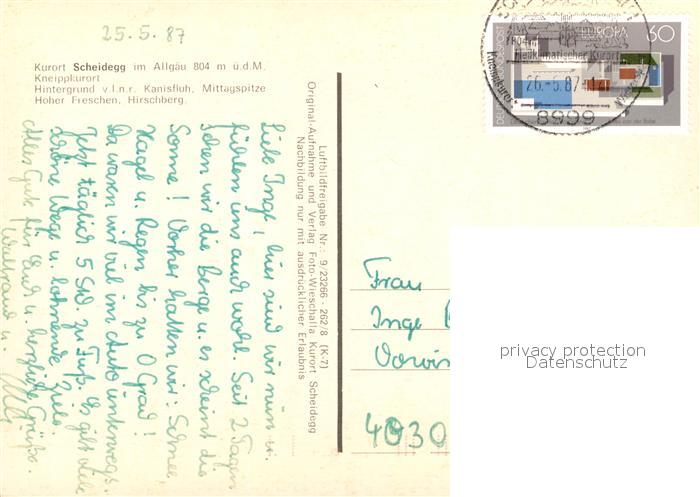 25.5.87
Kurort Scheidegg im Allgäu 804 m ü.d.M.
Kneippkurort
Hintergrund v.l.n.r. Kanisfluh, Mittagspitze
Hoher Freschen, Hirschberg.
Liebe Inge, hier sind wir nun u.
fühlen uns auch wohl. Seit 2 Tagen
sehen wir die Berge u. es scheint die
Sonne! Vorher hatten wir: Schnee,
Hagel u. Regen bis zu 0 Grad!
Da waren wir viel im Auto unterwegs.
Jetzt täglich 5 Std. zu Fuß. Es gibt viele
schöne Wege u. lohnende Ziele
Alles Gute für Euch u. herzliche Grüße.
Waltraud u.
Luftbildfreigabe Nr.: 9/23266 - 262/8 (K-7)
Original-Aufnahme und Verlag Foto-Wieschalla Kurort Scheidegg
Nachbildung nur mit ausdrücklicher Erlaubnis
EUROPA 60
Heilklimatischer Kurort
Kneippkurort
26.-5.87
8999
Frau
Inge
4030
privacy protection
Datenschutz